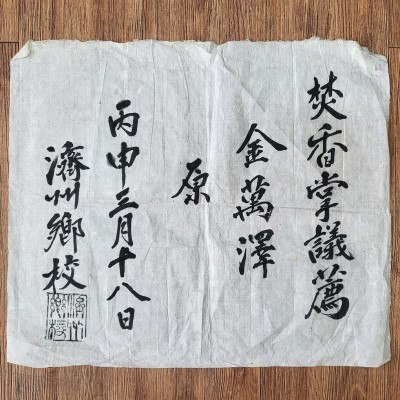 焚香掌議薦
金萬澤
原
丙申三月十八日
濟州鄉校
濟州鄉校